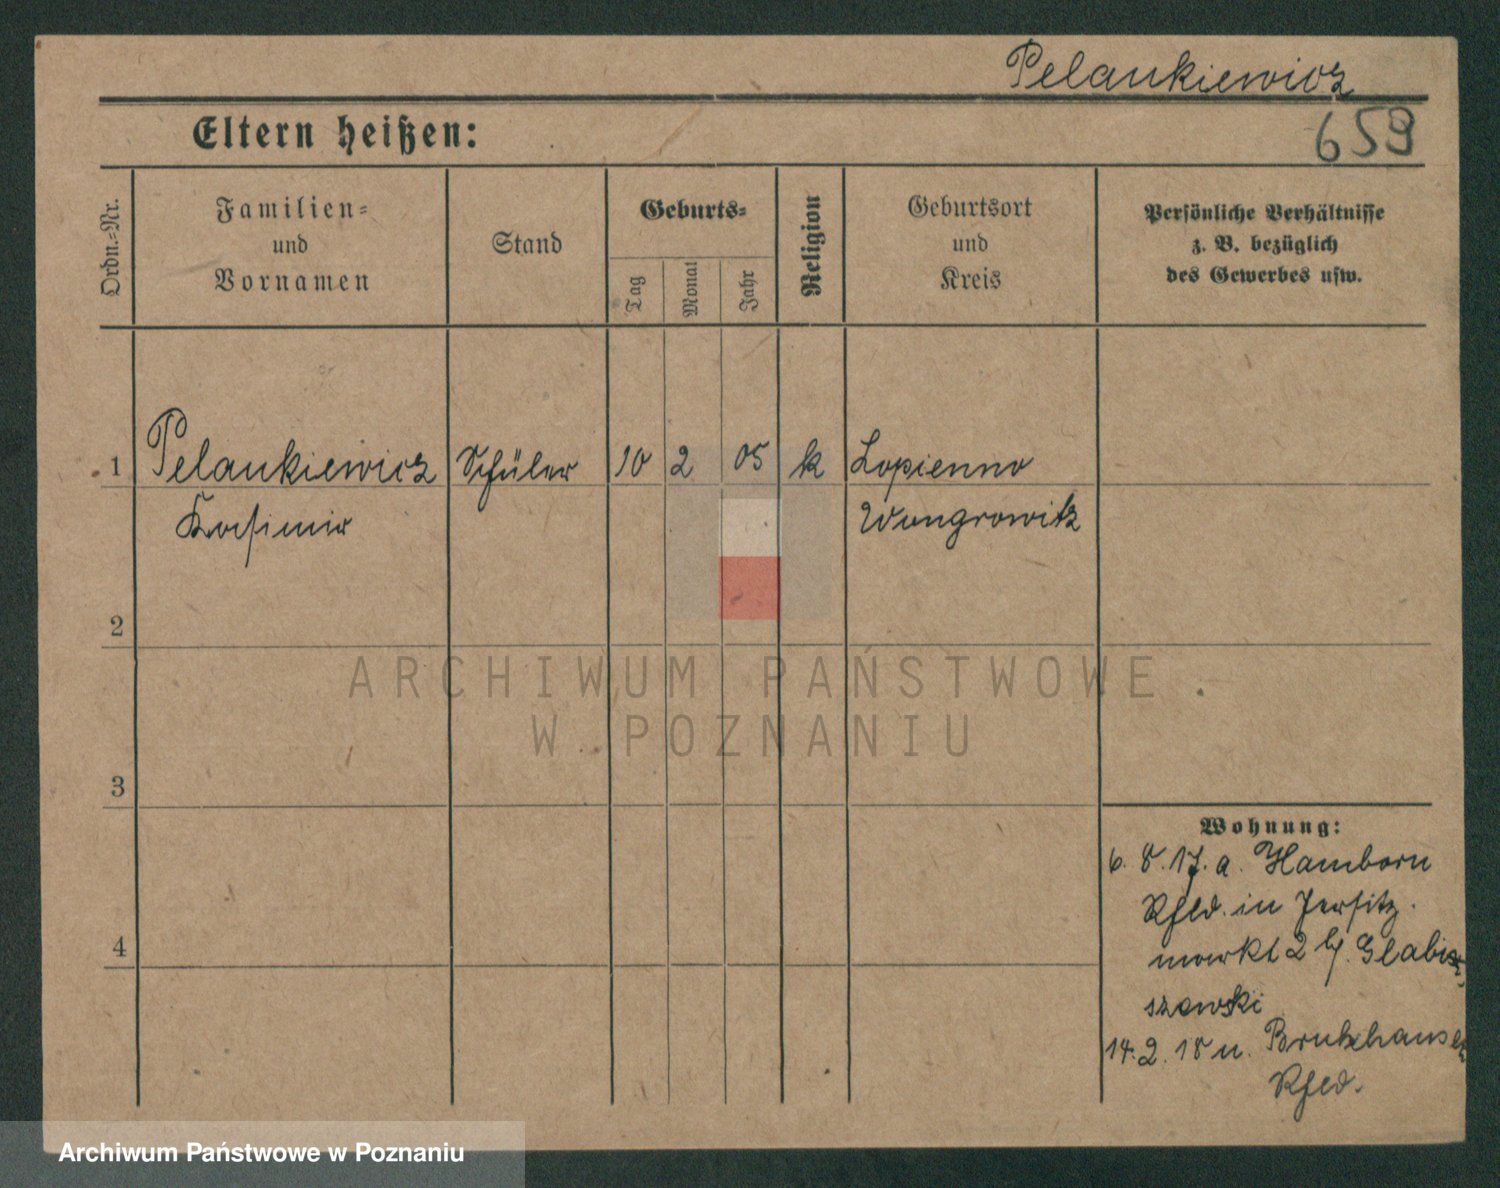 Pelankiewicz
Eltern heißen:
659
Ordn.=Nr.
Familien=
und
Vornamen
Stand
Geburts=
Tag
Monat
Jahr
Religion
Geburtsort
und
Kreis
Persönliche Verhältnisse
z. B. bezüglich
des Gewerbes usw.
1 Pelankiewicz Schüler 10 2 05 k Lopienno
Kasimir Wongrowitz
2
ARCHIWUM PAŃSTWOWE
W POZNANIU
3
4
Wohnung:
6. 8. 17. a. Hamborn
Rhld. in Jersitz.
markt 2 b/. Glabi
szewski
14. 2. 18 n. Bruckhausen
Rhld.
Archiwum Państwowe w Poznaniu